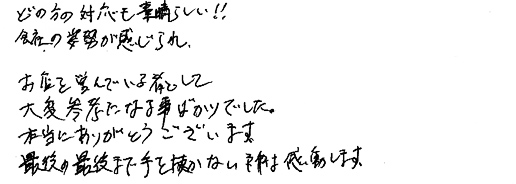 どの方の対応も素晴らしい!!
会社の姿勢が感じられ、
お店を営んでいる者として
大変参考になる事ばかりでした。
本当にありがとうございます
最後の最後まで手を抜かない 神は感動します